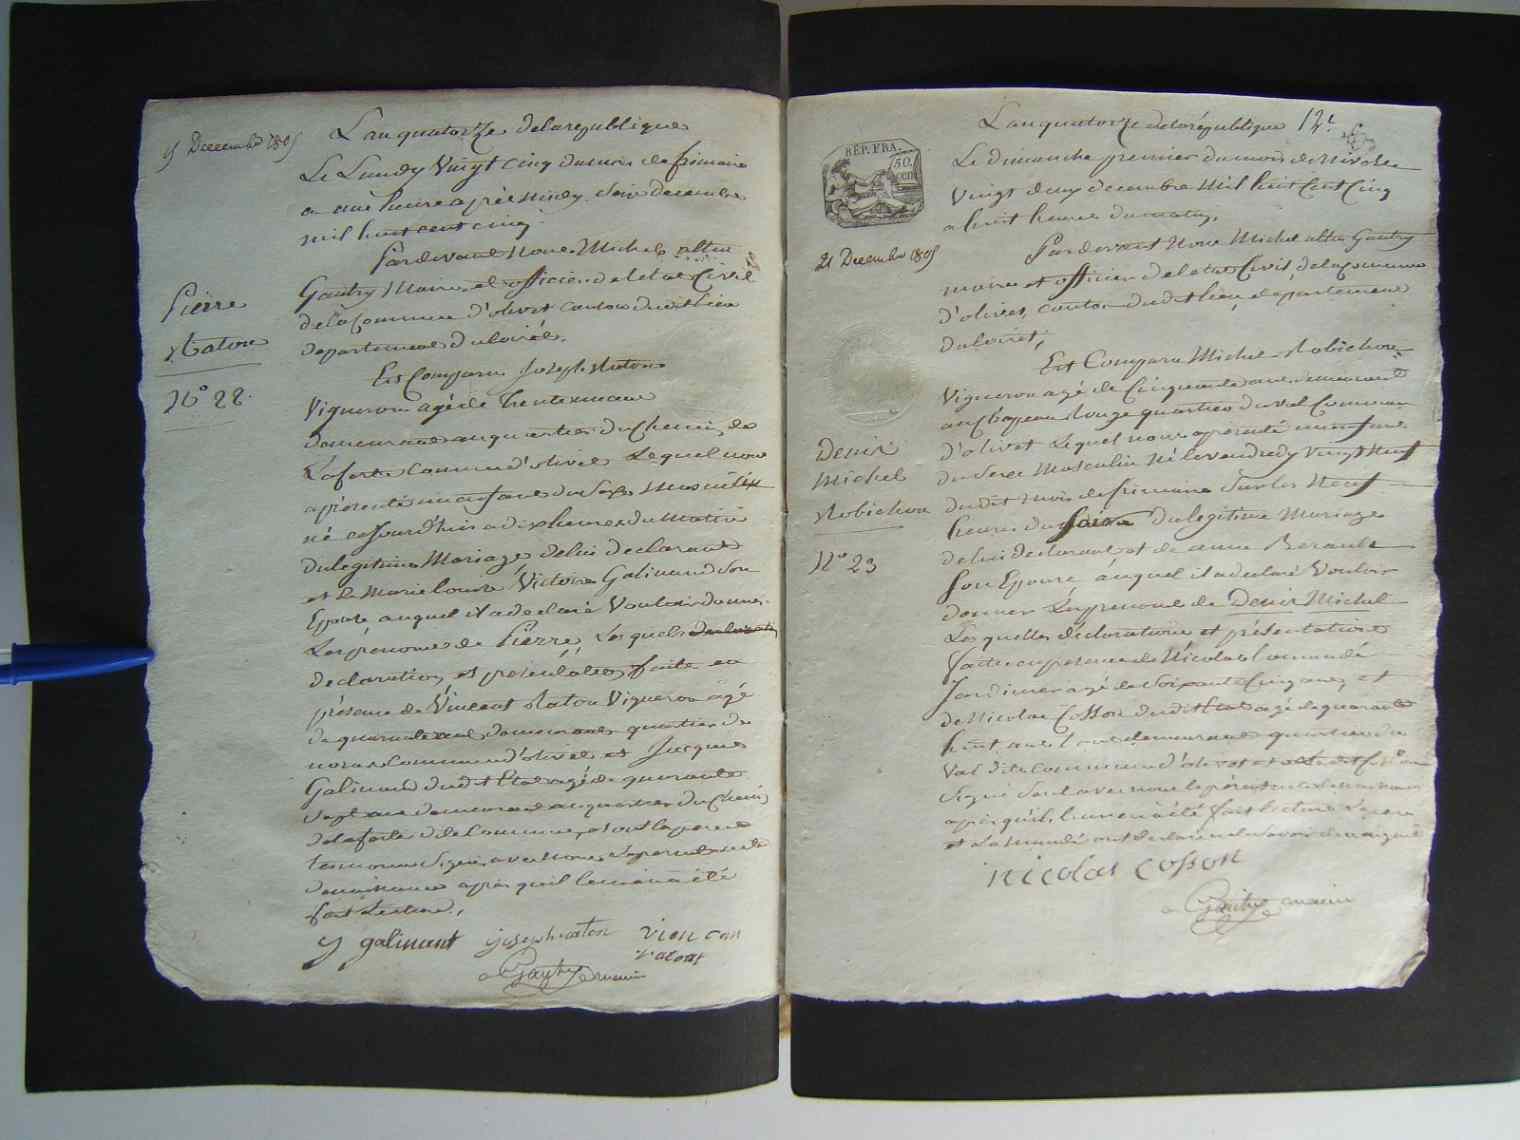 15 Decembre 1805
L'an quatorze de la republique
Le Lundy Vingt Cinq du mois de frimaire
a une heure après midy, Seize Decembre
mil huit cent cinq
Pardevant Nous Michel
Gautry Maire et officier de l'etat Civil
de la Commune d'olivet Canton dudit lieu
departement du loiret,
Pierre
Ratoin
N° 22.
Est Comparu Joseph Ratoin
Vigneron agé de trente neuf ans
demeurant au quartier du Chemin de
Laferté Commune d'olivet Lequel nous
a présenté un enfant du Sexe Masculin
né cejourd'huis a dix heures du Matin
du legitime Mariage de lui declarant
et de Marie Louise Victoire Galinand Son
Epouse auquel il a declaré Vouloir donner
Les prénoms de Pierre, Les quels
declaration et présentation faite en
présence de Vincent Ratoin Vigneron agé
de quarante ans demeurant quartier du
Commune d'olivet et Jacques
Galinand dudit Etat agé de quarante
Sept ans demeurant au quartier du Chemin
de Laferté dite Commune, et ont le pere et
temoins Signé avec nous le present acte de
naissance après qu'il leur en a été
fait Lecture,
J galinant joseph ratoin vien can
ratoin
Gautry maire
L'an quatorze de la république 12.
REP. FRA.
50.
cen
Le dimanche premier du mois de Nivose
Vingt deux decembre Mil huit Cent Cinq
a huit heures du matin,
21 Decembre 1805
Pardevant Nous Michel Gautry
maire et officier de l'etat Civil de la Commune
d'olivet, canton dudit lieu, departement
du loiret,
Est Comparu Michel Robichon
Vigneron agé de Cinquante ans demeurant
au Chapeau Rouge quartier du Val Commune
d'olivet Lequel nous a présenté un enfant
Denis
Michel
Robichon
N° 23
du Sexe Masculin Né le vendredy Vingt Neuf
dudit mois de frimaire Sur les Neuf
heures du Soir du legitime Mariage
de lui declarant et de anne Berault
Son Epouse auquel il a declaré Vouloir
donner Les prenoms de Denis Michel
Lesquelles déclaration et présentation
faite en presence de Nicolas
Jardinier agé de Soixante Cinq ans, et
de Nicolas Cosson dudit Etat agé de quarante
huit ans demeurant quartier du
Val dite Commune d'olivet et
Signé avec nous le présent acte
après qu'il leur en a été fait lecture Le pere
et ont declaré ne Savoir Signer
nicolas cosson
Gautry maire